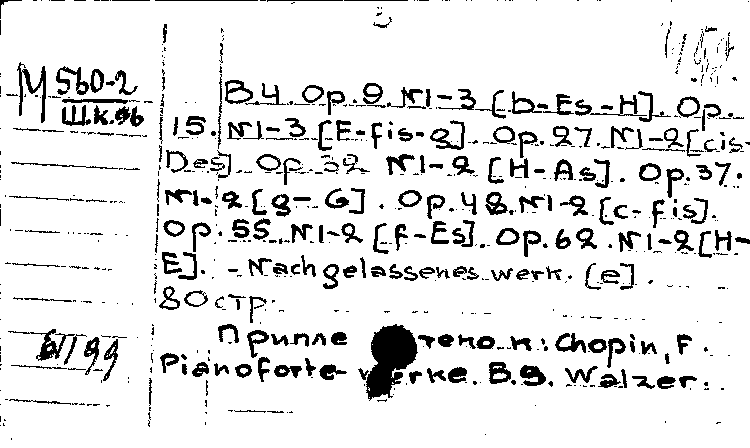 3
М 560-2
Ш.к.96
B.4. Op.9. N1-3 [b-Es-H]. Op.
15. N1-3 [F-fis-g]. Op.27. N1-2 [cis-
Des]. Op.32 N1-2 [H-As]. Op.37.
N1-2 [g-G]. Op.48. N1-2 [c-fis].
Op.55. N1-2 [f-Es]. Op.62. N1-2 [H-
E]. - Nachgelassenes werk. [e].
80 стр.
Припле тено к: Chopin, F.
Pianoforte-werke. B.9. Walzer.